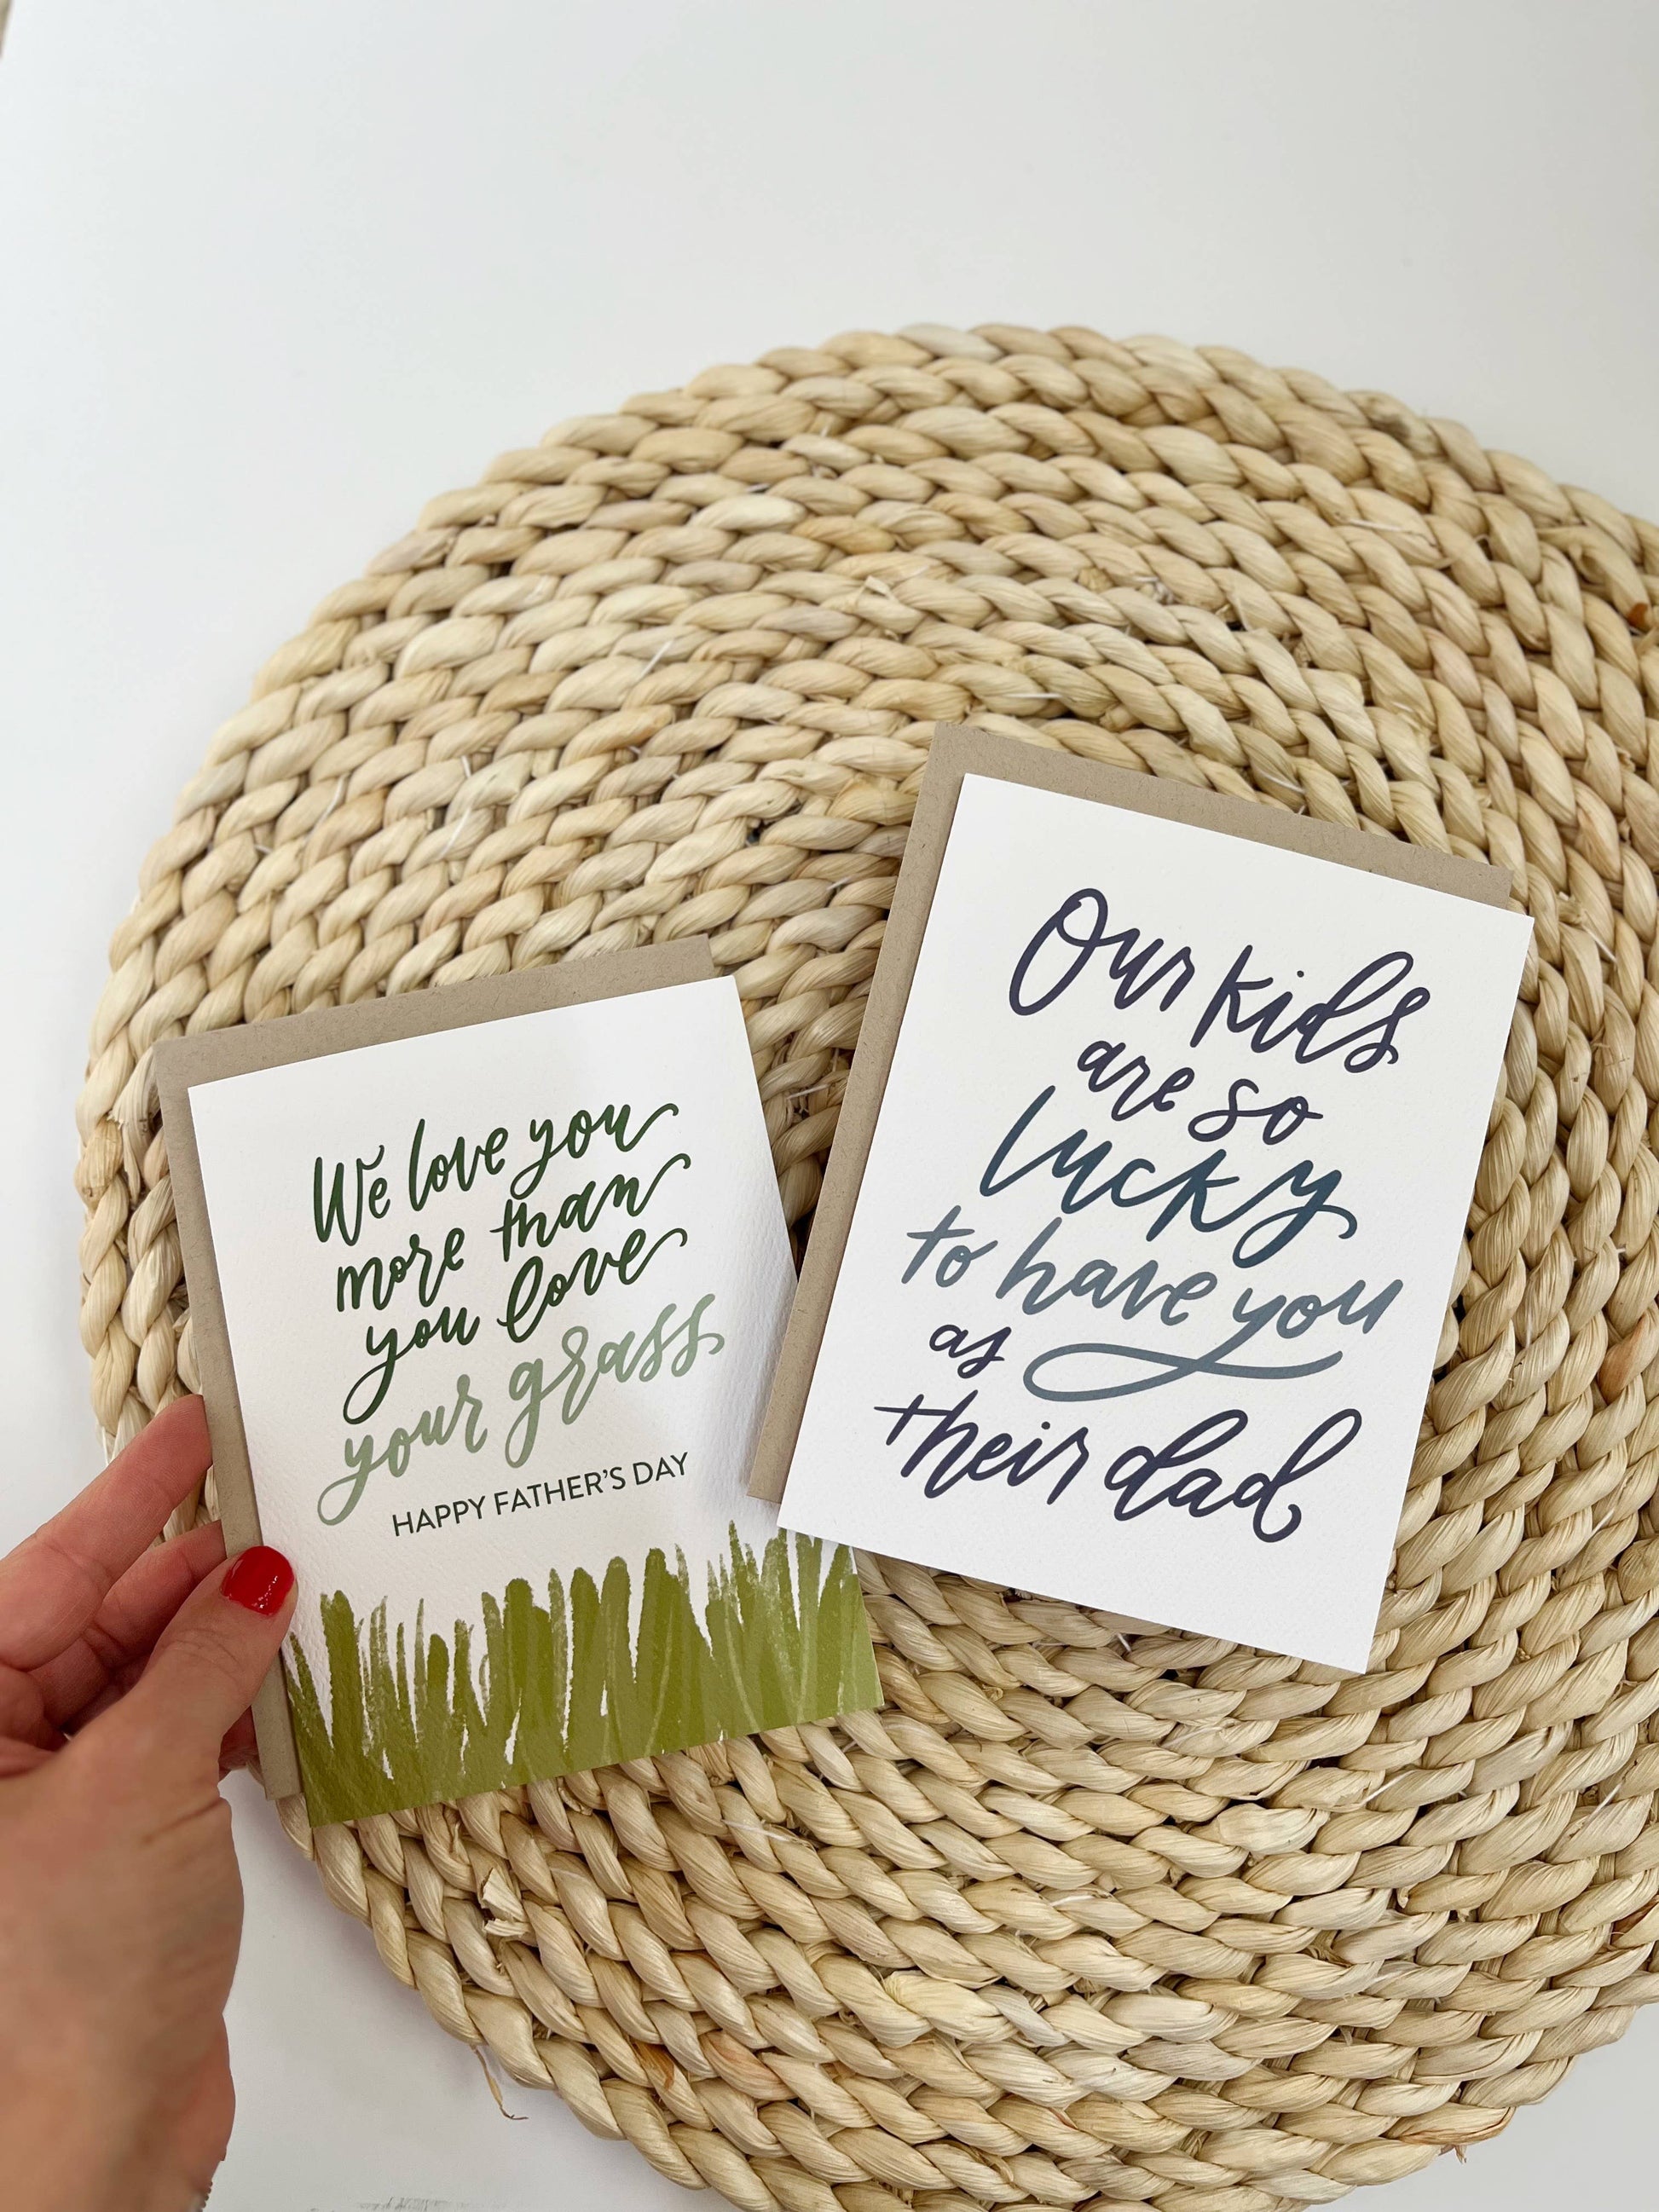 We love you
more than
you love
your grass
HAPPY FATHER'S DAY
Our kids
are so
lucky
to have you
as
their dad